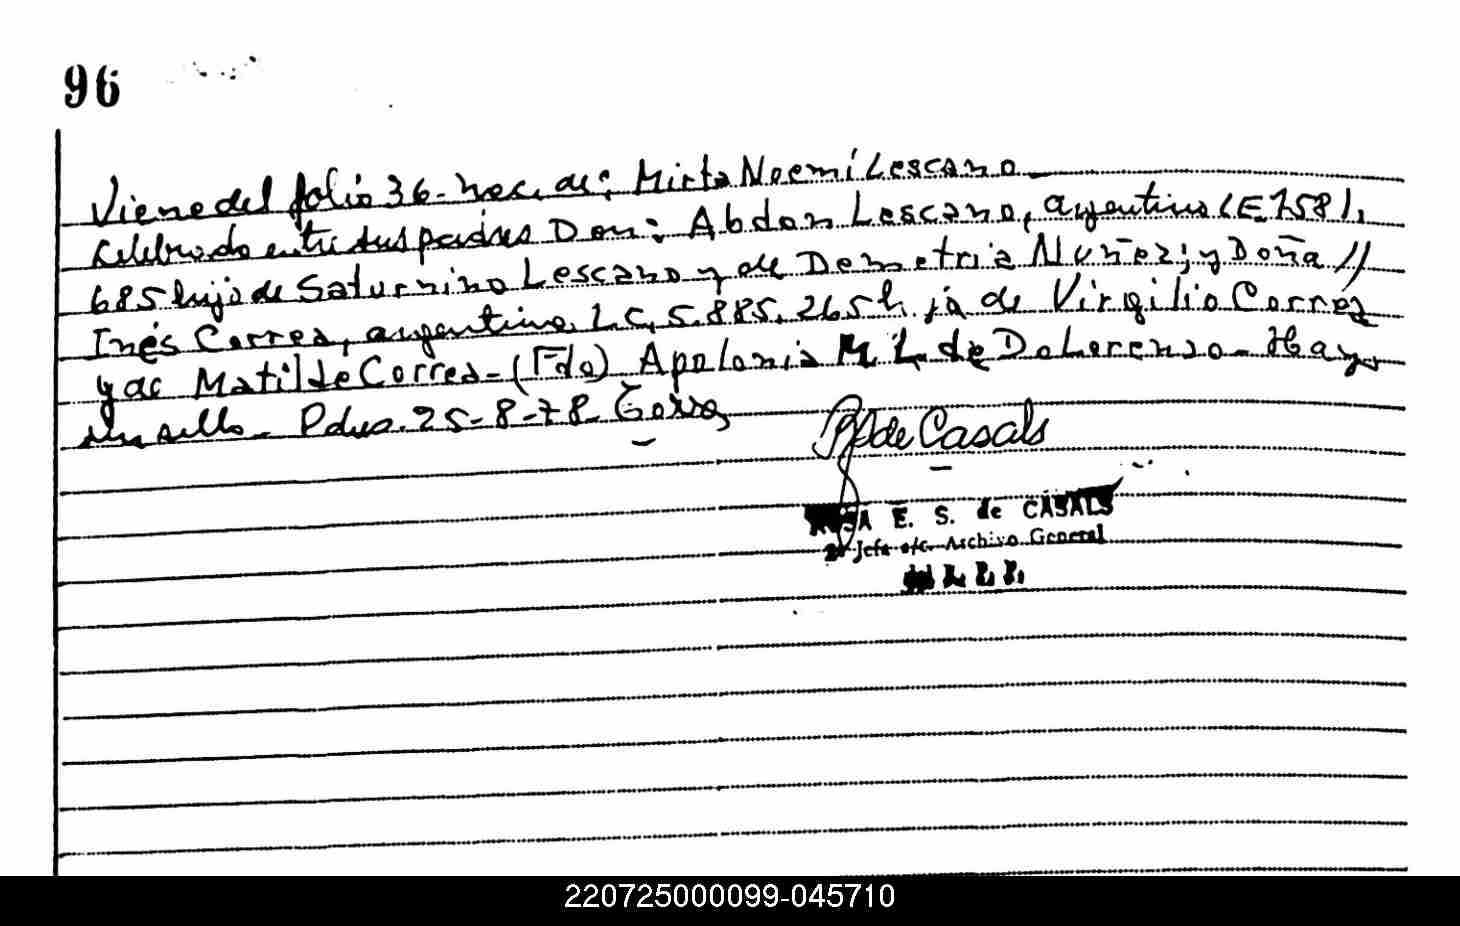 96
Viene del folio 36- nac. de: Mirta Noemí Lescano
Celebrado entre sus padres Don: Abdon Lescano, argentino LE 758).
685 hijo de Saturnino Lescano y de Demetria Nuñez; y Doña //
Inés Correa, argentina, L.C. 5.885.265 hija de Virgilio Correa
y de Matilde Correa- (Fdo) Apolonia M. L. de DoLorenzo- Hay
un sello- Pdas. 25-8-78
de Casals
E. S. de CASALS
2º Jefa a/c. Archivo General
220725000099-045710